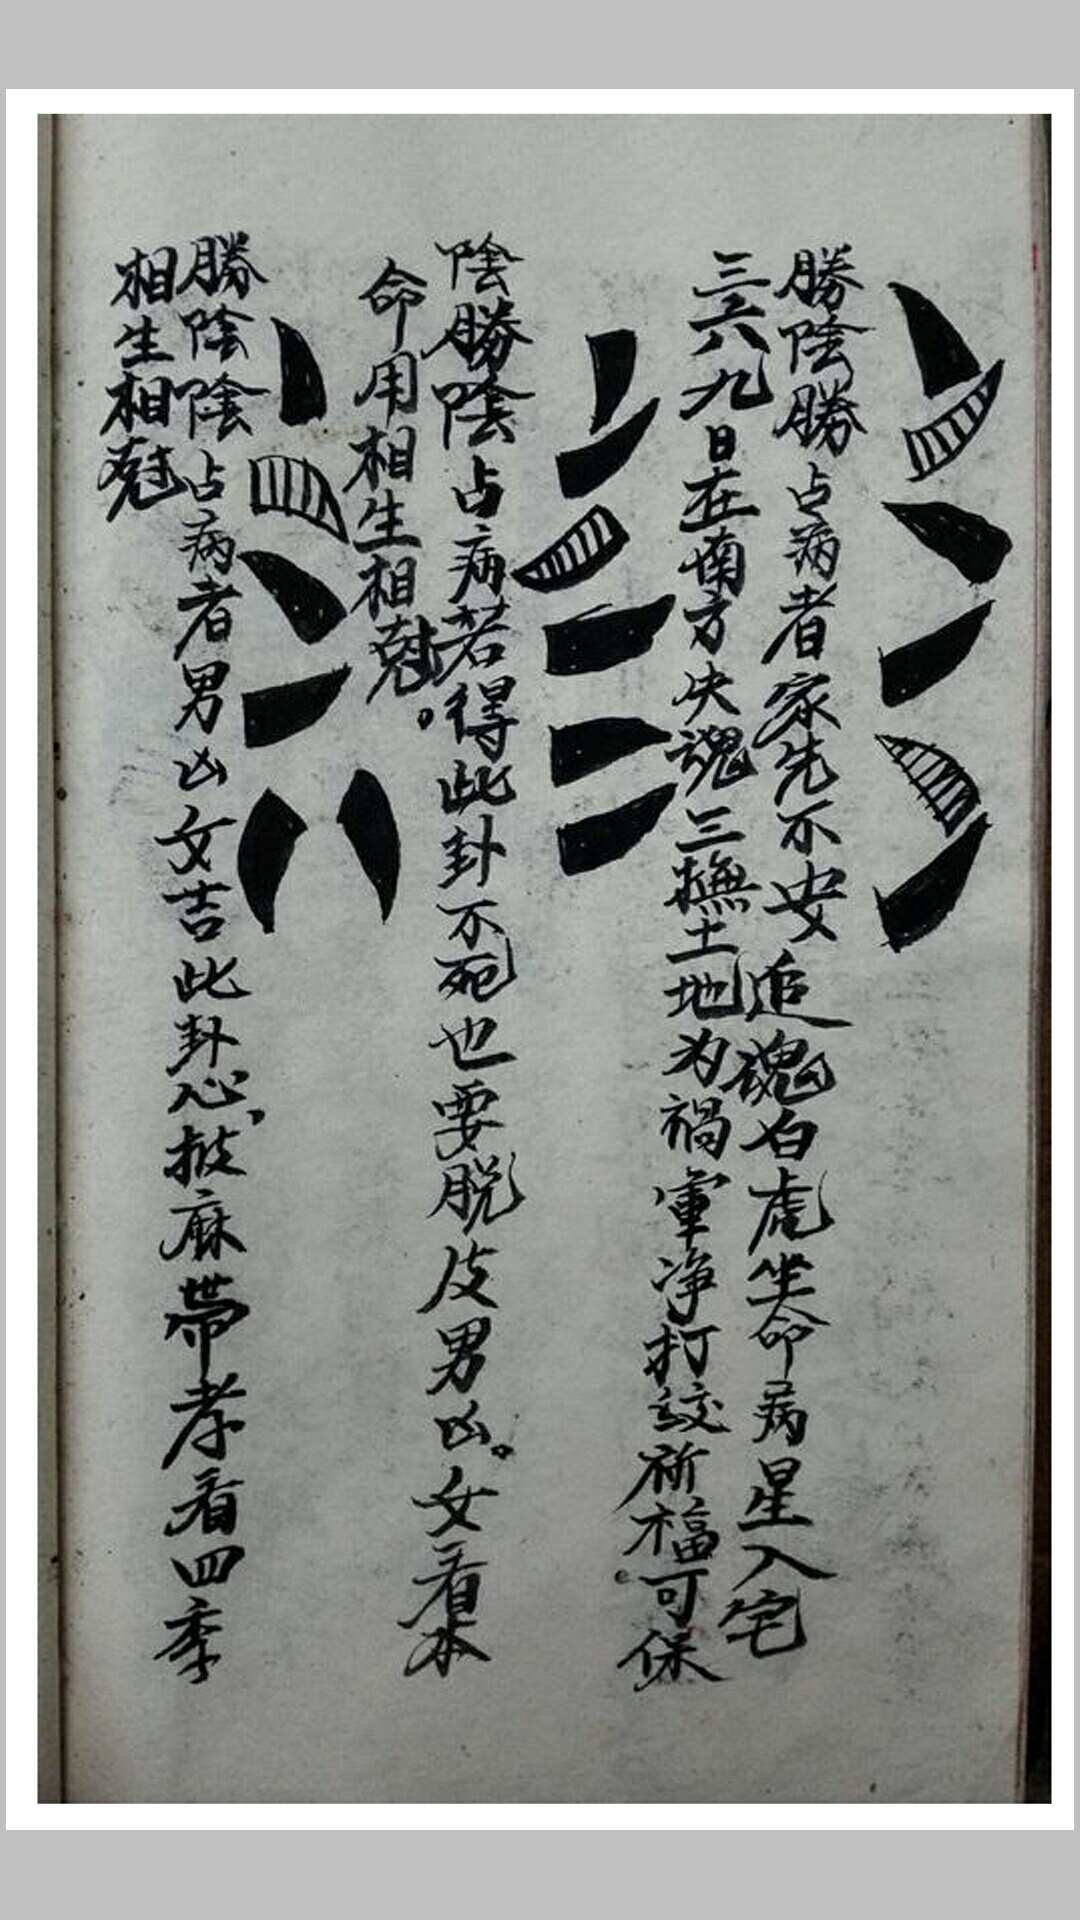 勝陰勝占病者家先不安追魂白虎坐命病星入宅
三六九日在南方失魂三撫土地为禍宜净打設祈福可保
陰勝陰占病若得此卦不死也要脱皮男凶。女看本
命用相生相尅。
勝陰陰占病者男凶女吉此卦心、披麻带孝看四季
相生相尅